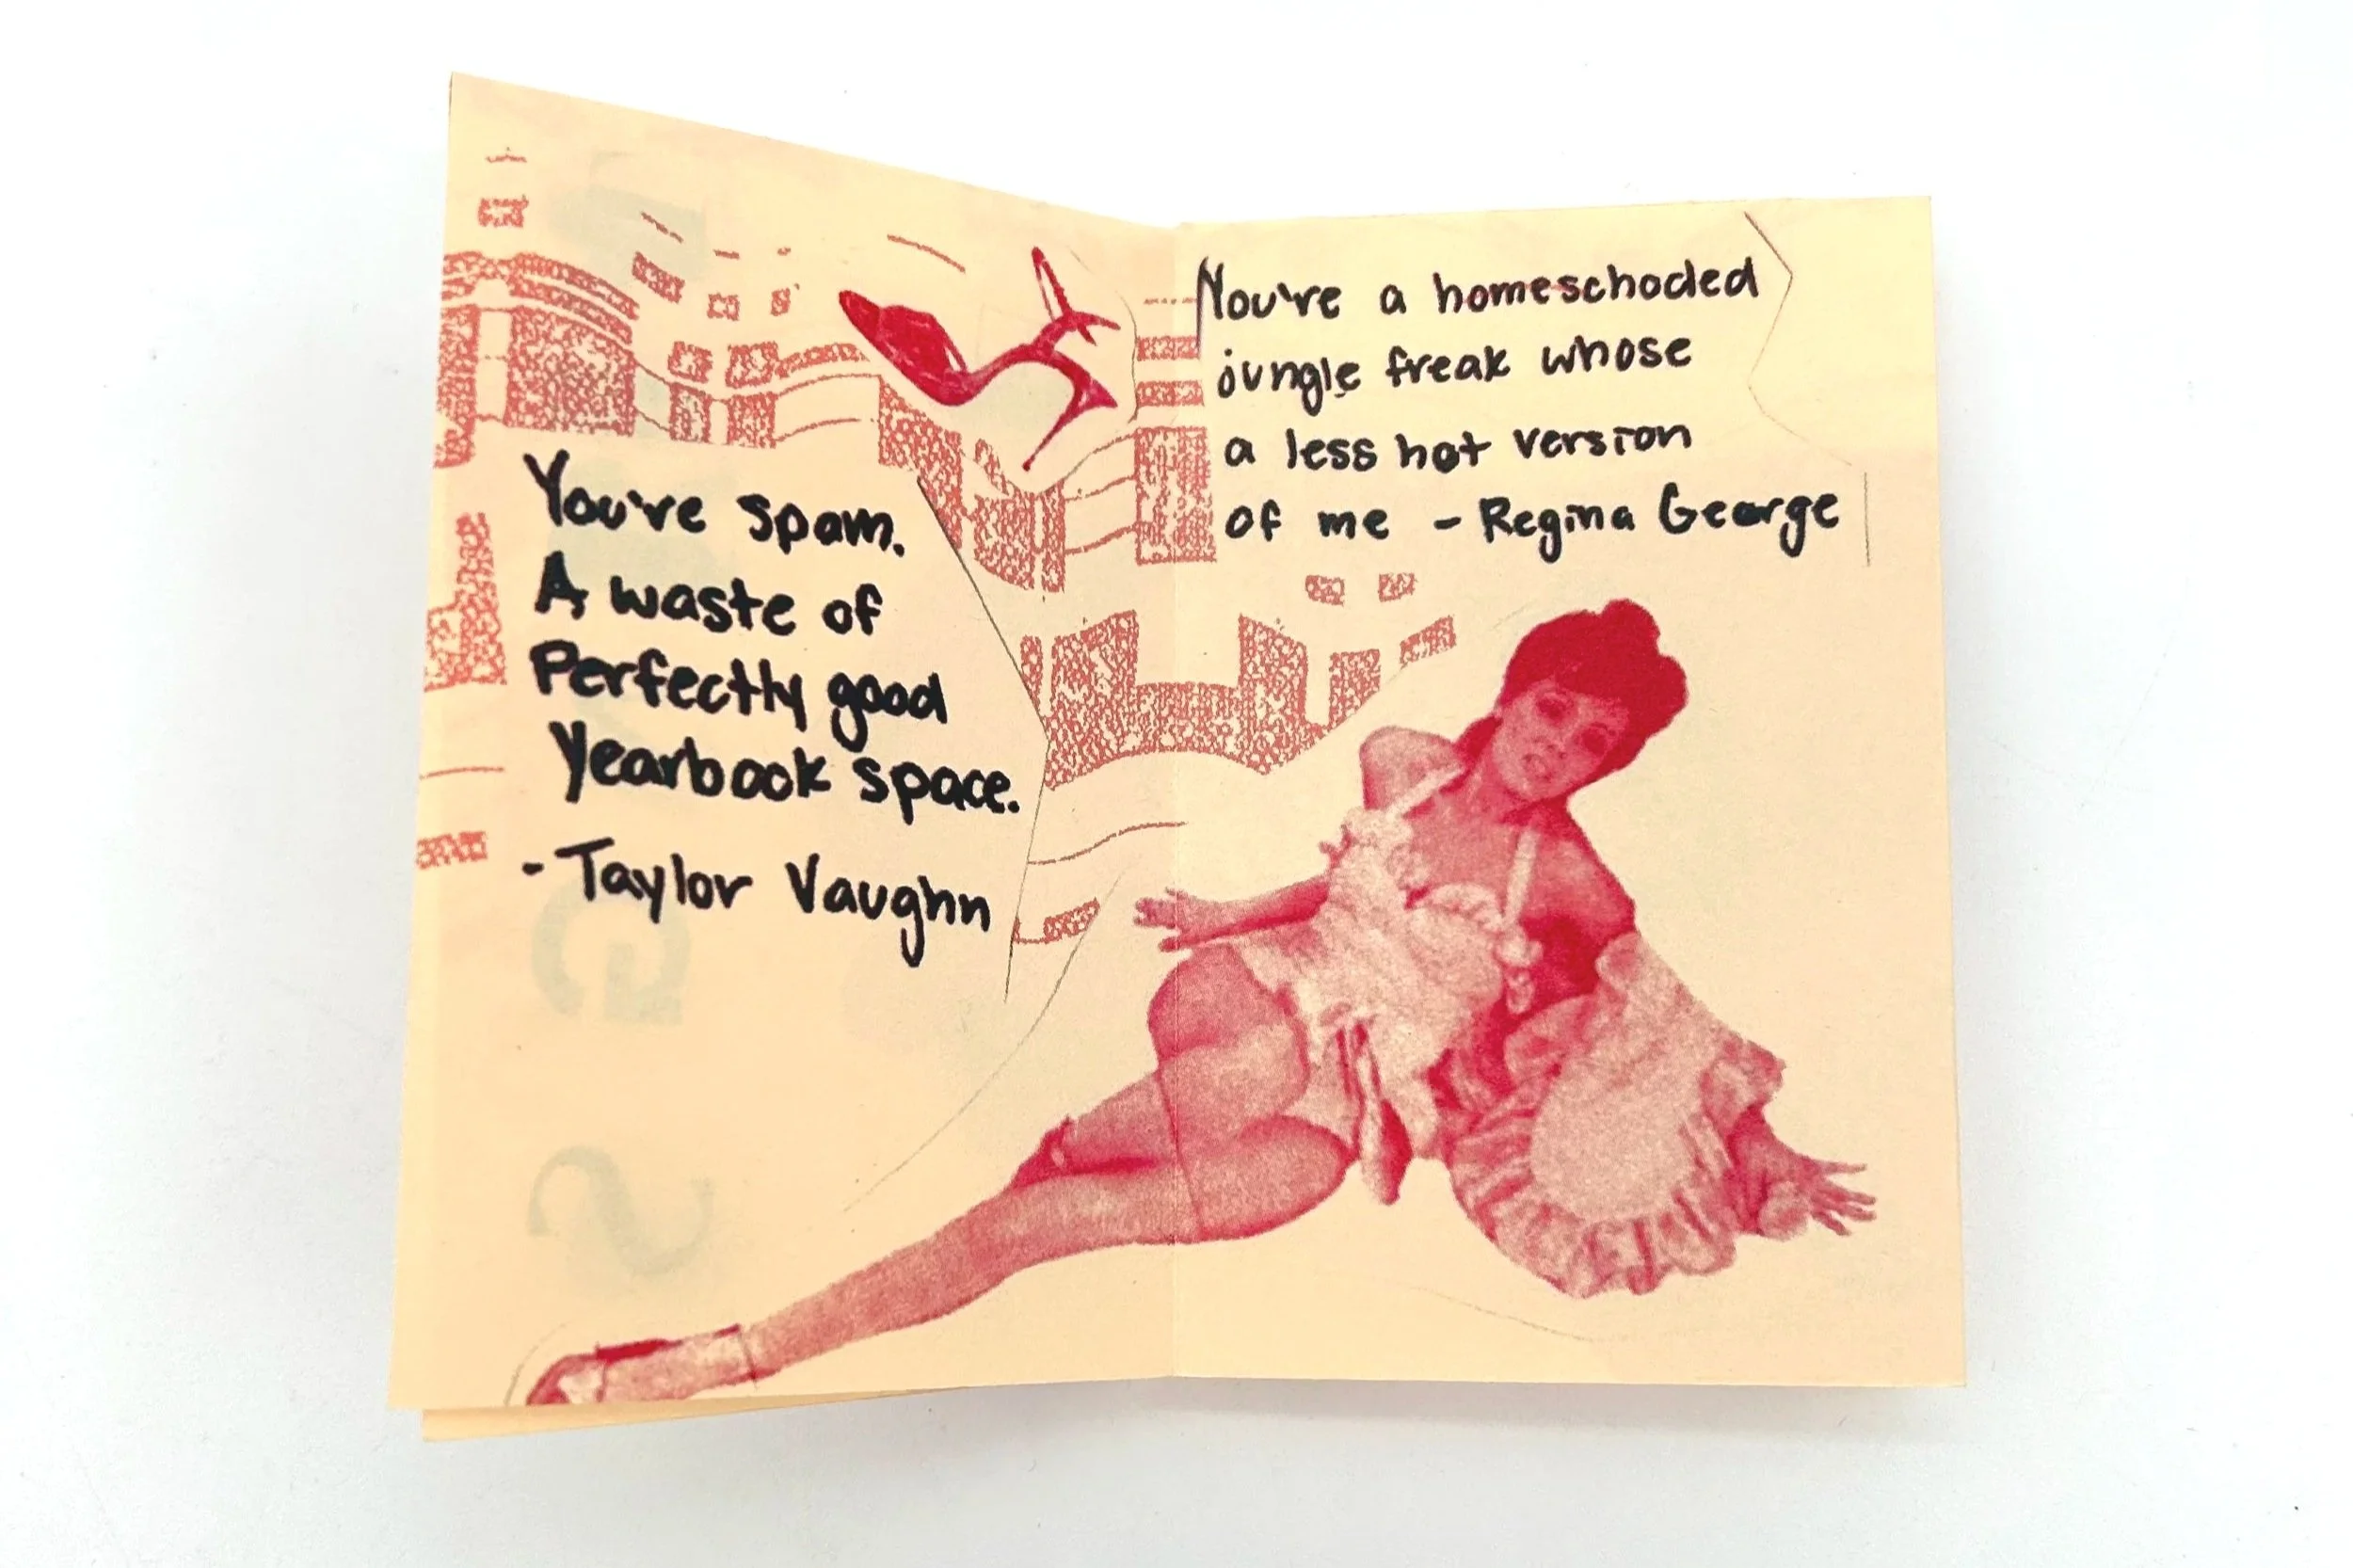 You're spam.
A waste of
Perfectly good
Yearbook space.
- Taylor Vaughn
You're a homeschooled
jungle freak whose
a less hot version
of me - Regina George